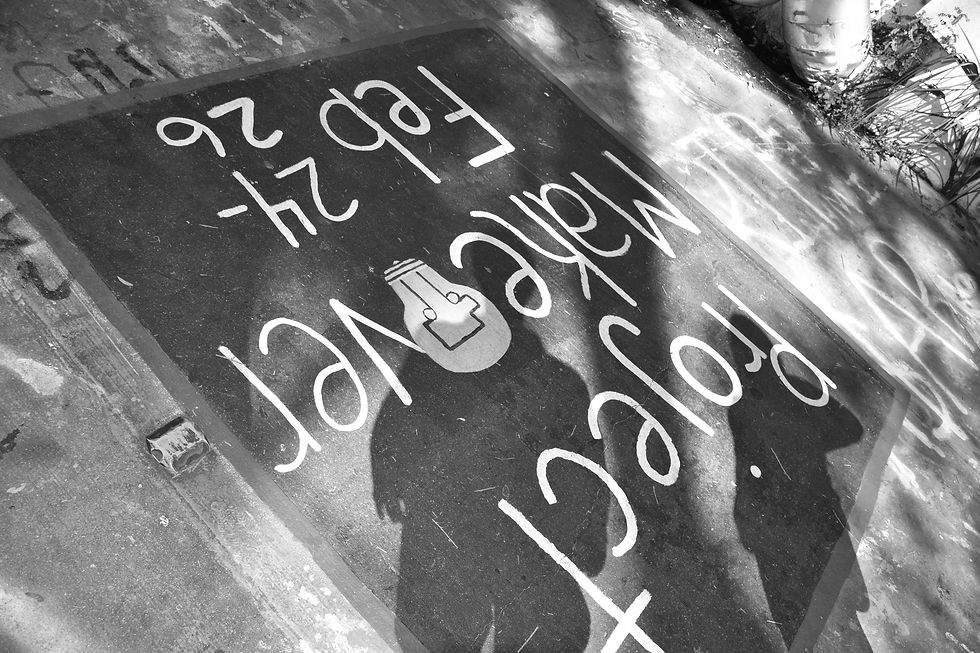 Project
Make Ver
Feb 24-
26